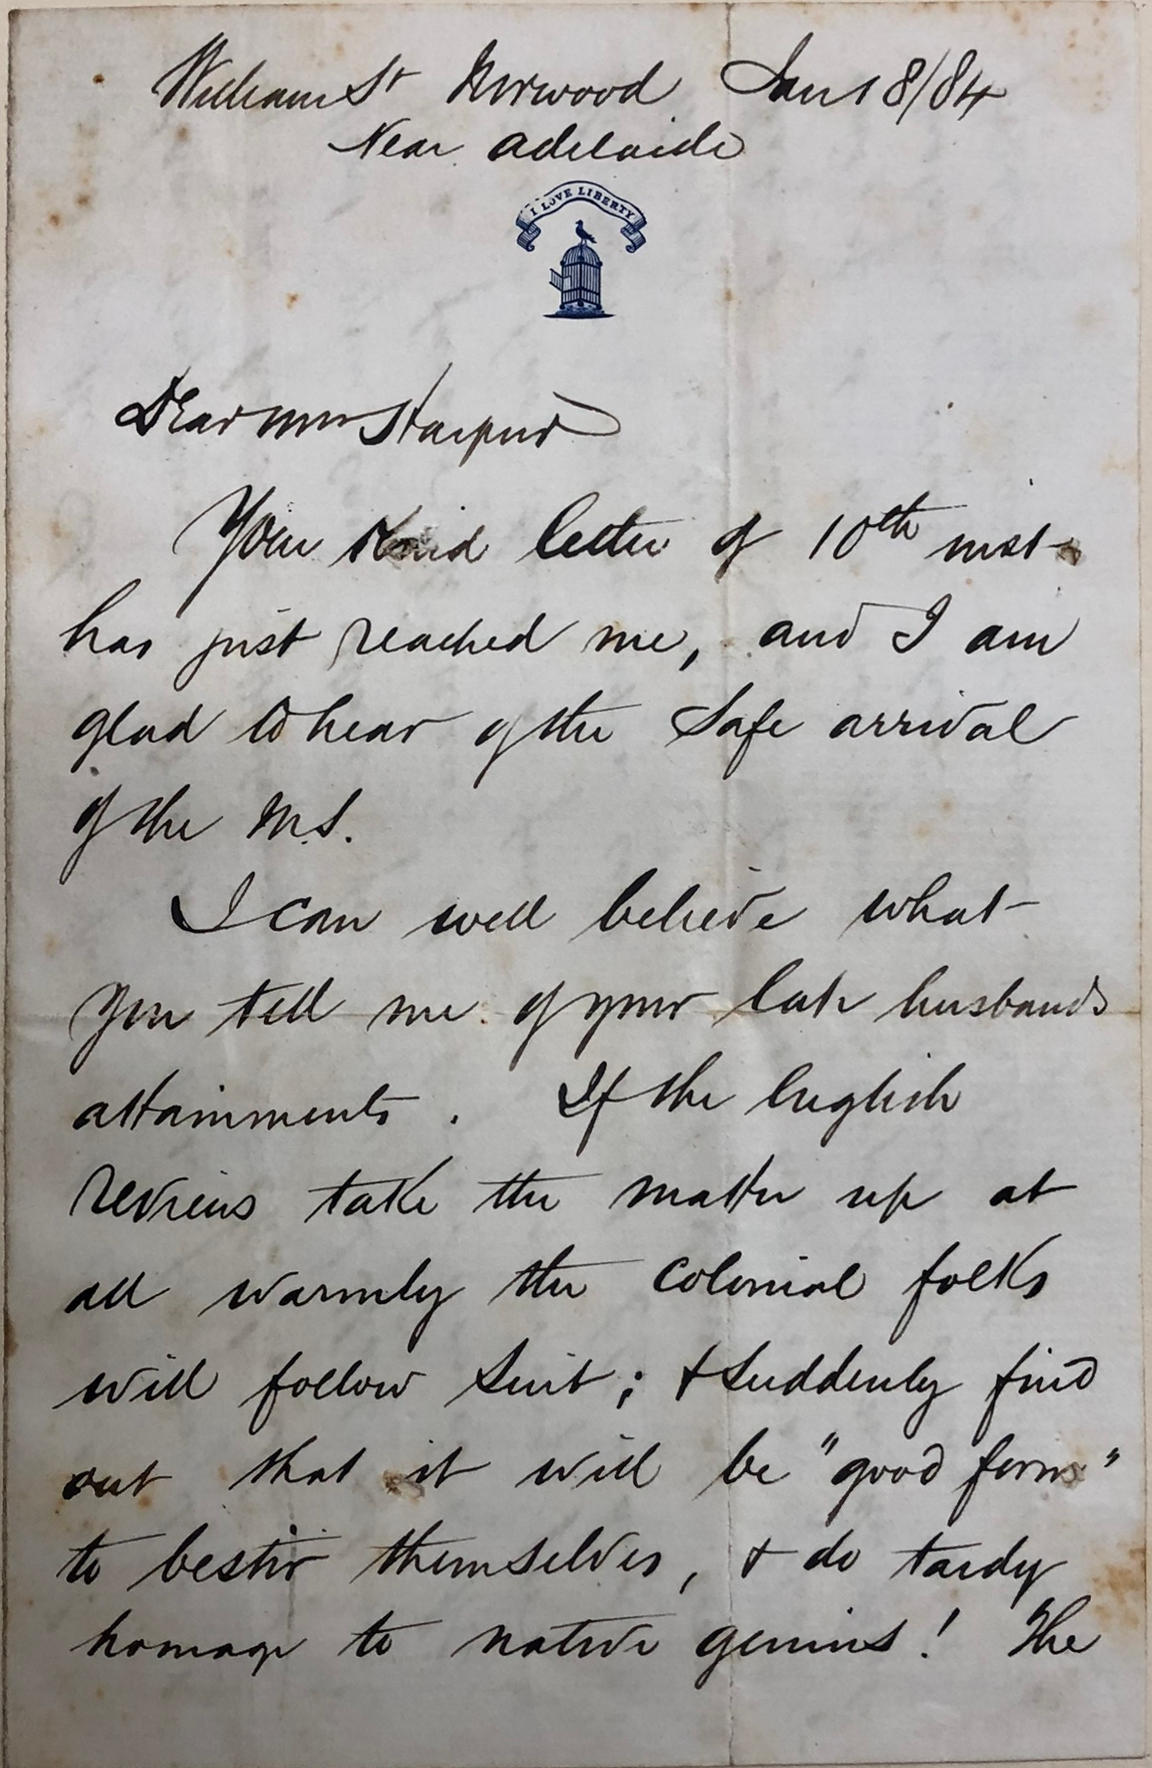 William St Norwood Jan 18/84
Near Adelaide
I LOVE LIBERTY
Dear Mrs Harpur
Your kind letter of 10th inst
has just reached me, and I am
glad to hear of the safe arrival
of the M.S.
I can well believe what
you tell me of your late husbands
attainments. If the English
reviews take the matter up at
all warmly the colonial folks
will follow suit; & suddenly find
out that it will be "good form"
to bestir themselves, & do tardy
homage to native genius! The